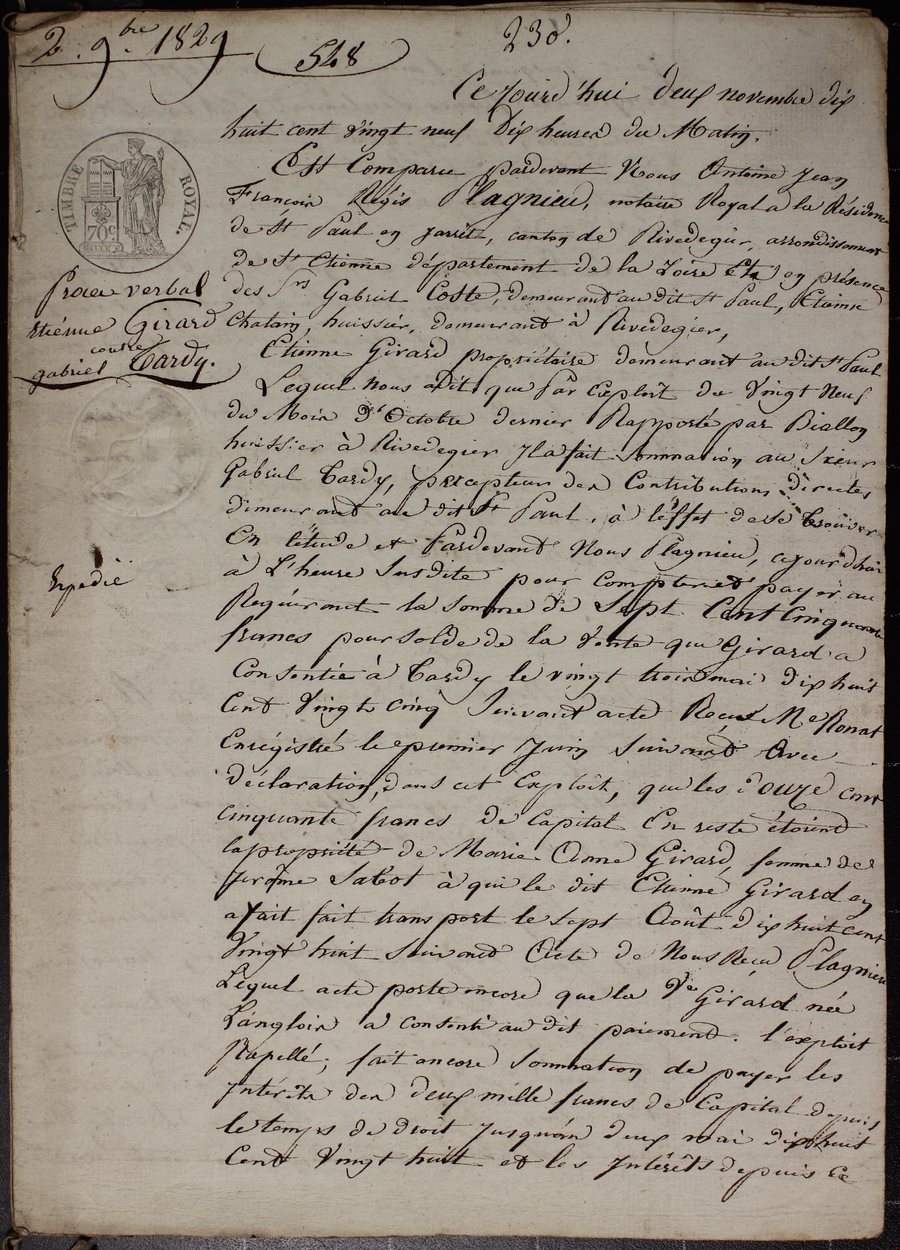 2. 9bre 1829
548
230.
Ce jourd'hui deux novembre dix
huit cent vingt neuf Dix heures du Matin.
Est Comparu pardevant Nous Antoine Jean
François Régis Plagnieu, notaire Royal a la Résidence
de St Paul en Jarret, canton de Rivedegier, arrondissement
de St Etienne département de la Loire Et en présence
des Srs Gabriel Coste, demeurant au dit St Paul, Etienne
Chatain, huissier, demeurant à Rivedegier,
Etienne Girard propriétaire demeurant au dit St Paul
Lequel Nous a dit que Par Exploit du Vingt Neuf
du Mois d'Octobre dernier Rapporté par Biallon
huissier à Rivedegier Il a fait sommation au Sieur
Gabriel Tardy, percepteur des Contributions directes
dimeurant au dit St Paul, à l'éffet de se trouver
En l'étude et Pardevant Nous Plagnieu, cejourd'hui
à L'heure Susdite pour compter et payer au
Requérant la somme de Sept Cent Cinquante
francs pour solde de la Vente que Girard a
Consentie à Tardy le vingt trois mai dix huit
Cent Vingt cinq Suivant acte Recu Me Ronat
Enrégistré le premier Juin Suivant Avec
déclaration, dans cet Exploit, que les douze cent
cinquante francs de Capital En reste étoient
la propriété de Marie Anne Girard, femme de
Jerôme Sabot à qui le dit Etienne Girard en
avait fait transport le sept Août dix huit cent
Vingt huit Suivant Acte de Nous Recu Plagnieu
Lequel acte porte encore que la Ve Girard née
Langlois a consenti au dit paiement. l'exploit
Rapellé, fait encore Sommation de payer les
Intérêts des deux mille francs de Capital depuis
le temps de droit Jusqu'au deux mai dix huit
Cent Vingt huit et les Intérêts depuis ce
TIMBRE ROYAL.
70c
Proces verbal
Etiénne Girard
contre
gabriel Tardy.
Expedié